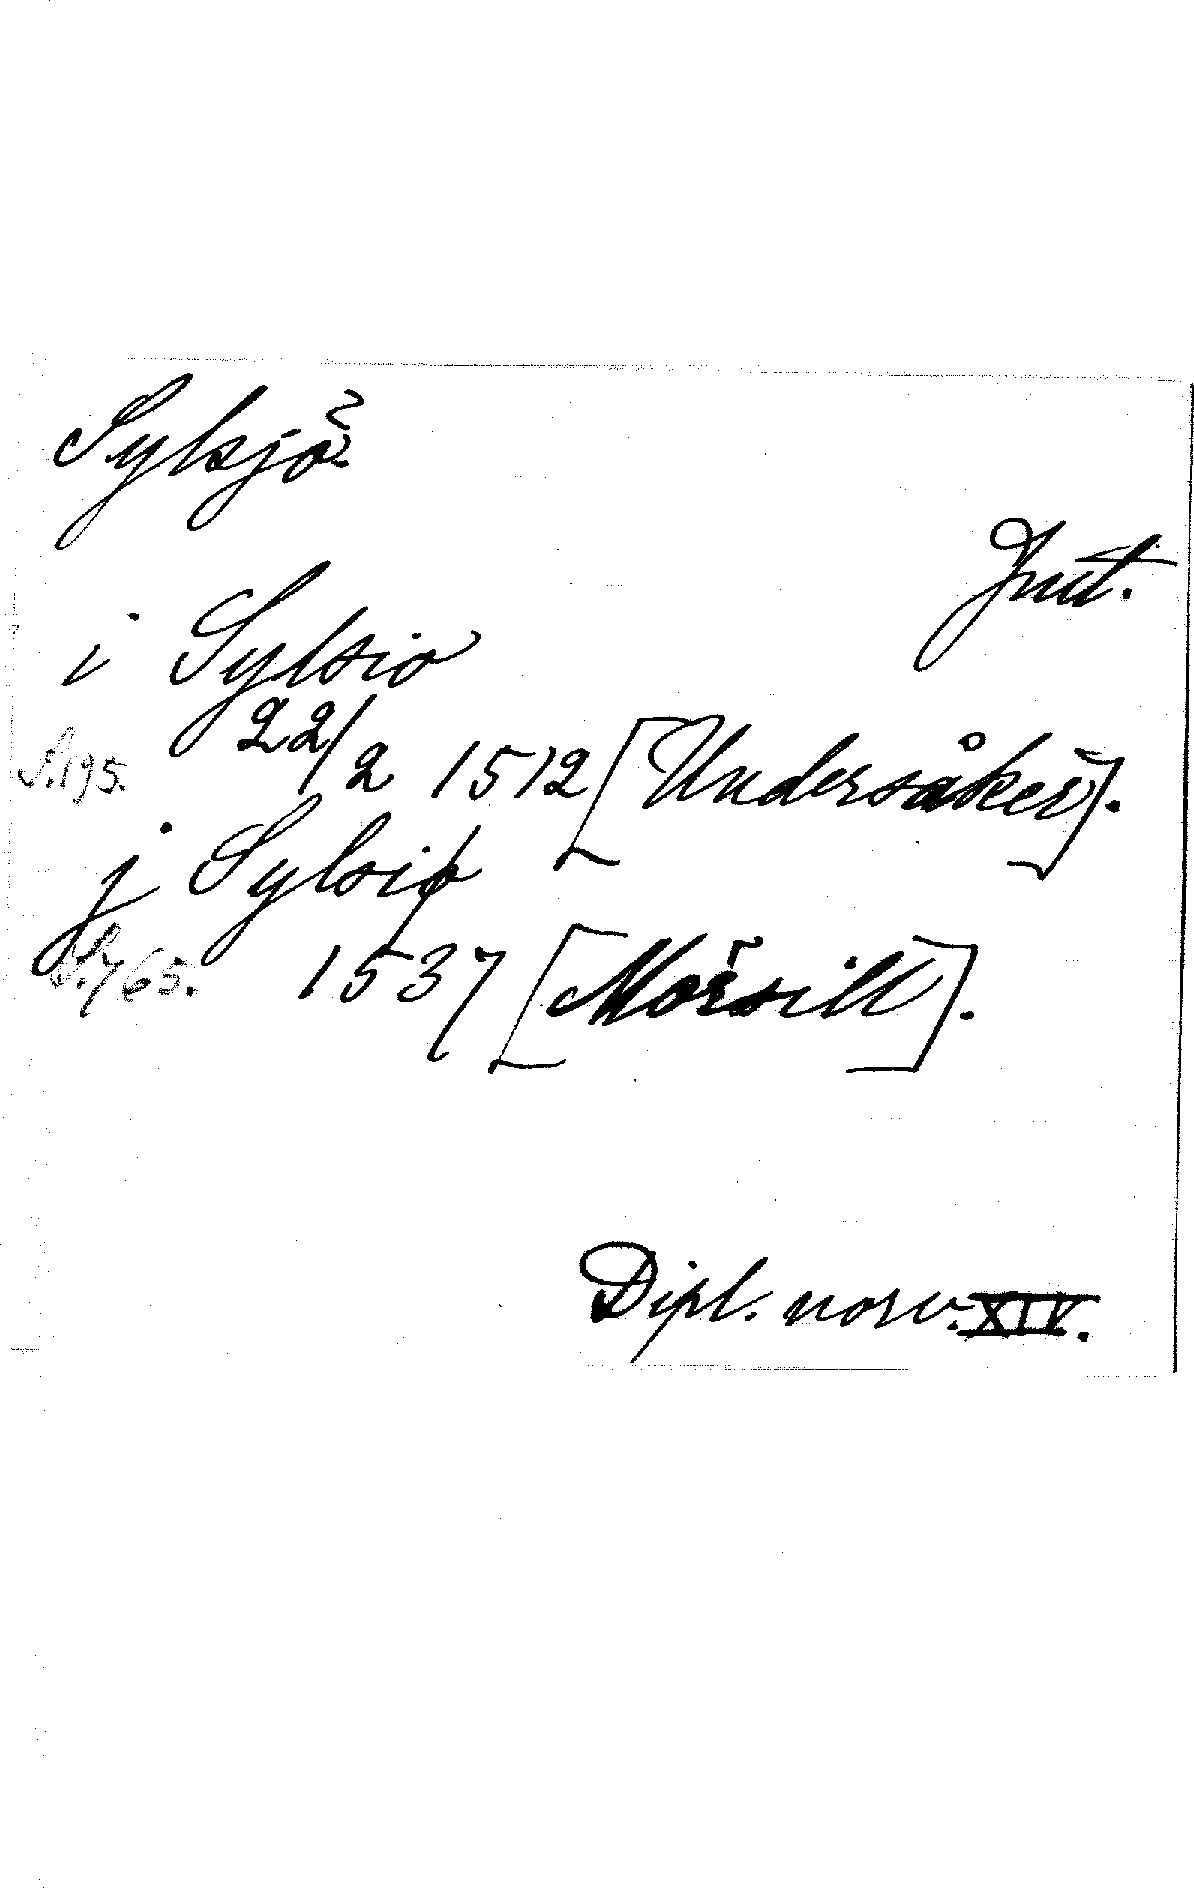 Sylsjö
Jmt.
i Sylsio
22/2 1512 [Undersåker].
S. 195.
j Sylsiø
S. 765. 1537 [Mörsill].
Dipl. norv. XIV.